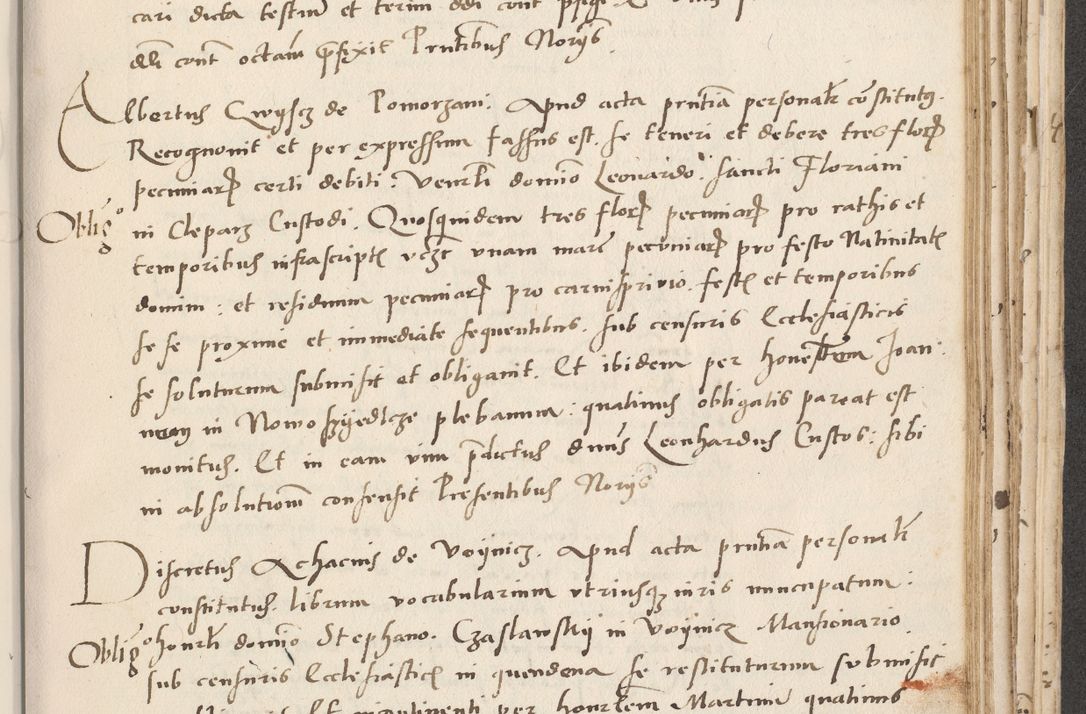 cari dicta testium et terim ddi cont
ddi cont octam prefixit Prntibus Norijs
Albertus Cwysz de Pomorzani. Apud acta prntia personalr constitutg.
Recognouit et per expressum fassus est. se teneri et debere tres flor
pecuniar certi debiti: Venrli domino Leonardo. sancti Floriani
Oblig in Cleparz Custodi. Quosquidem tres flor pecuniar pro rathis et
temporibus infrascript vczt vnam marc pecuniar pro festo Natiuitat
domini: et residuum pecuniar pro carnispriuio. fest et temporibus
se se proxime et immediate sequentibus. sub censuris Ecclesiasticis
se soluturum submisit et obligauit. Et ibidem per honestum Joan
in Nowoszyedlcze plebanum: quatinus obligatis pareat est
monitus. Et in eam vim pdictus dnus Leonhardus Custos: sibi
in absolutionem consensit Presentibus Norijs
Discretus Achacius de Voynicz. Apud acta prntia personalr
constitutus. librum vocabularium vtriusqz iuris nuncupatum:
Oblig honrli domino Stephano. Czaslawskij in Voynicz Mansionario
sub censuris Ecclesiastic in quendena se restiturum submisit
Et incontinenti per honrlem Martinum quatinus